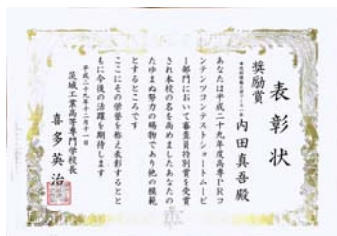 表彰状
奨励賞
内田真吾殿
あなたは平成二十九年度高専PRコ
ンテンツコンテストショートムービ
ー部門において審査員特別賞を受賞
され本校の名を高めましたあなたの
たゆまぬ努力の賜物であり他の模範
とするところです
ここにその栄誉を称え表彰するとと
もに今後の活躍を期待します
平成二十九年十二月十一日
茨城工業高等専門学校長
喜多英治